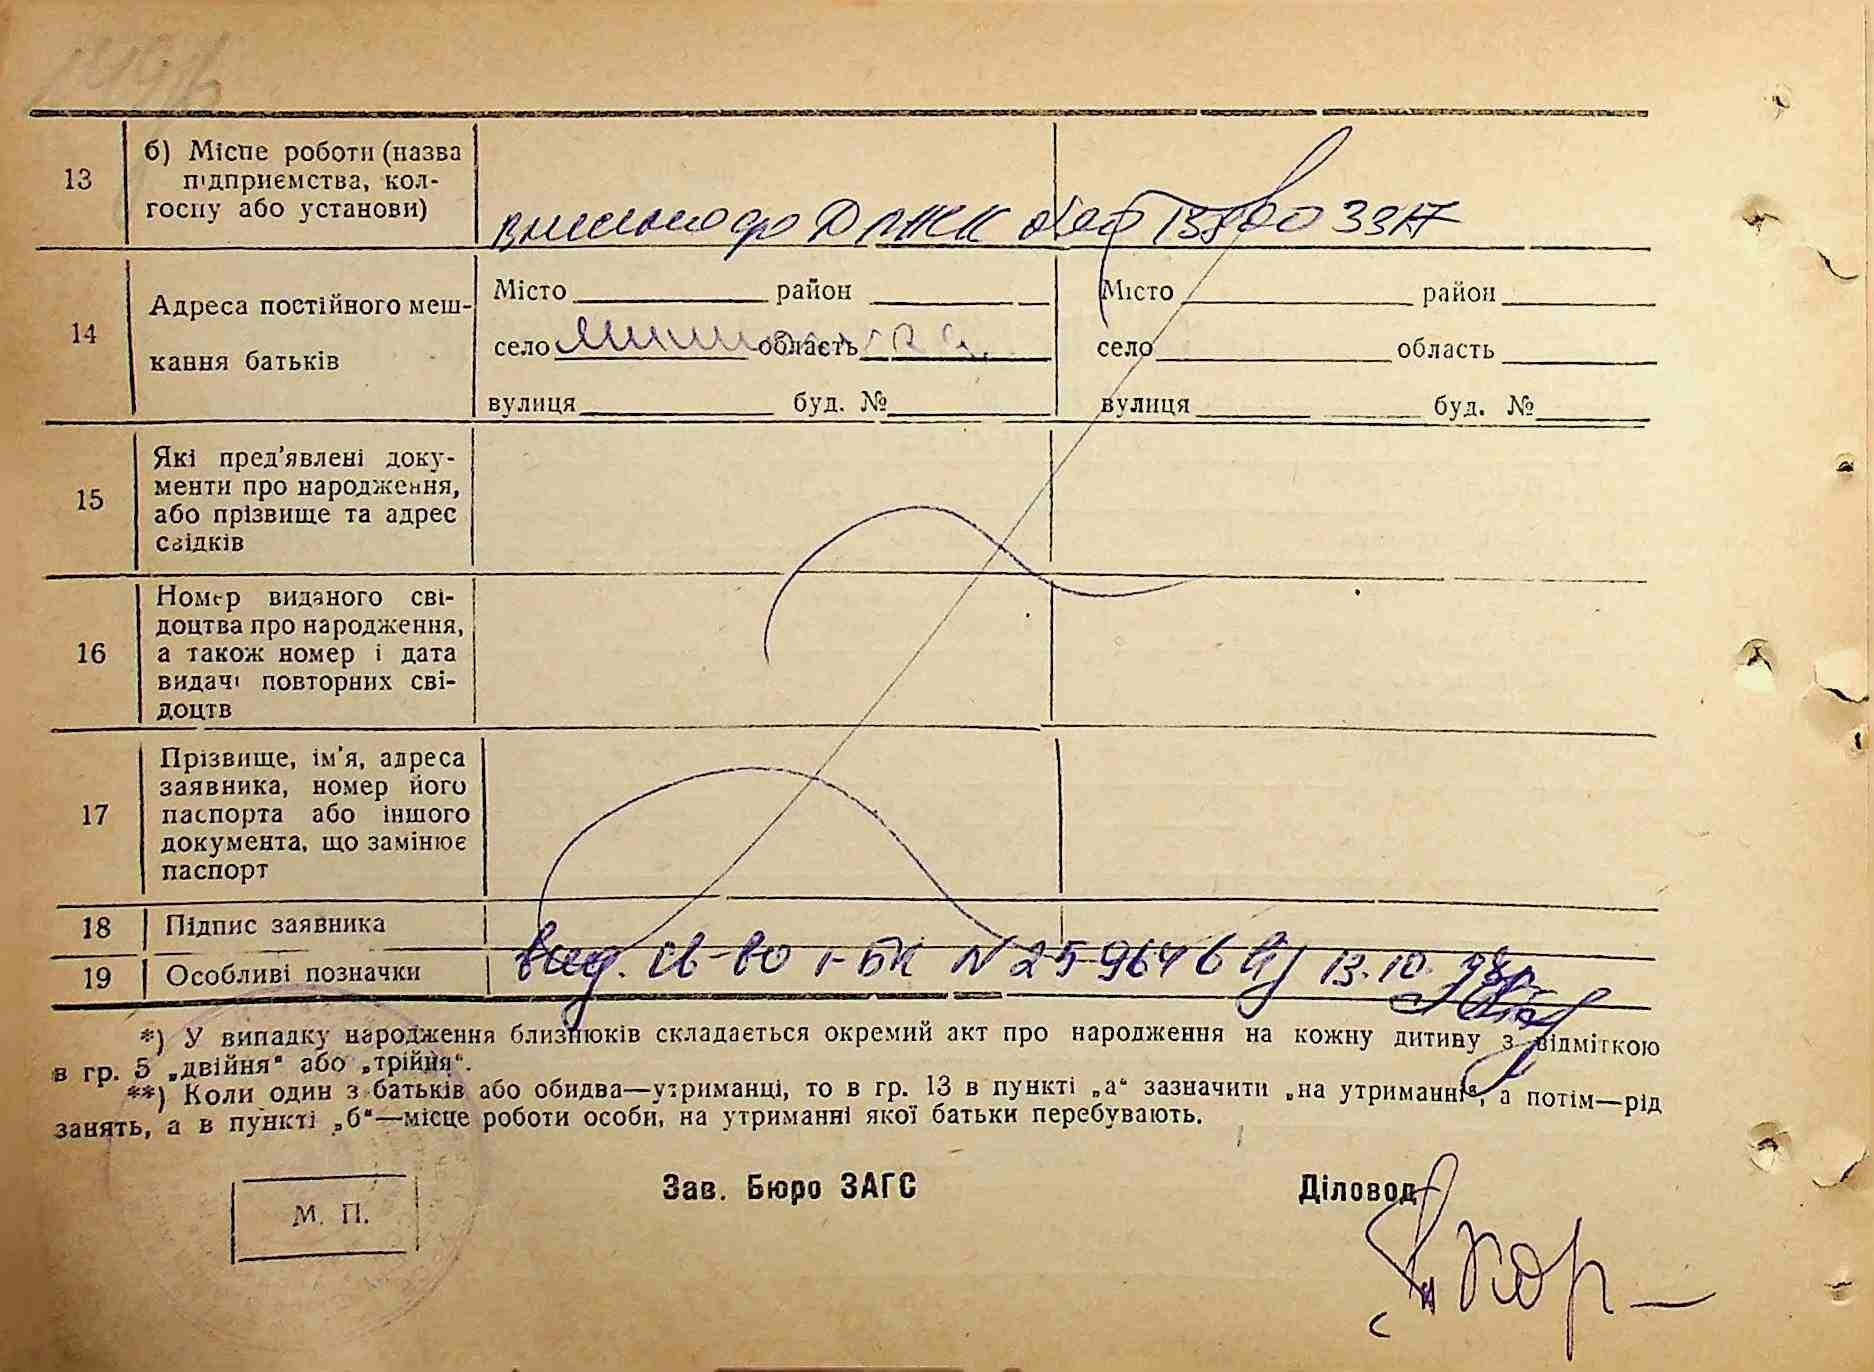 13
б) Місце роботи (назва
підприємства, кол-
госпу або установи)
14
Адреса постійного меш-
кання батьків
Місто район
село область
вулиця буд. №
Місто район
село область
вулиця буд. №
15
Які пред'явлені доку-
менти про народження,
або прізвище та адрес
свідків
16
Номер виданого сві-
доцтва про народження,
а також номер і дата
видачі повторних сві-
доцтв
17
Прізвище, ім'я, адреса
заявника, номер його
паспорта або іншого
документа, що замінює
паспорт
18 Підпис заявника
19 Особливі позначки
вид. св-во І-БК N 259646 від 13.10.98р.
*) У випадку народження близнюків складається окремий акт про народження на кожну дитину з відміткою
в гр. 5 „двійня“ або „трійня“.
**) Коли один з батьків або обидва—утриманці, то в гр. 13 в пункті „а“ зазначити „на утриманні“, а потім—рід
занять, а в пункті „б“—місце роботи особи, на утриманні якої батьки перебувають.
М. П.
Зав. Бюро ЗАГС
Діловод